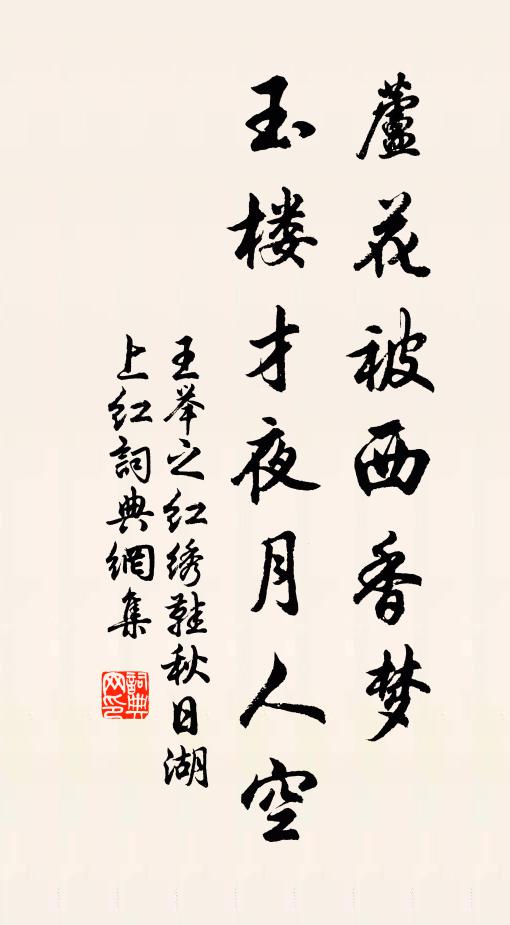 蘆花被西香梦
玉楼才夜月人空
王举之红绣鞋秋日湖
上红詞典網集
詞典网印